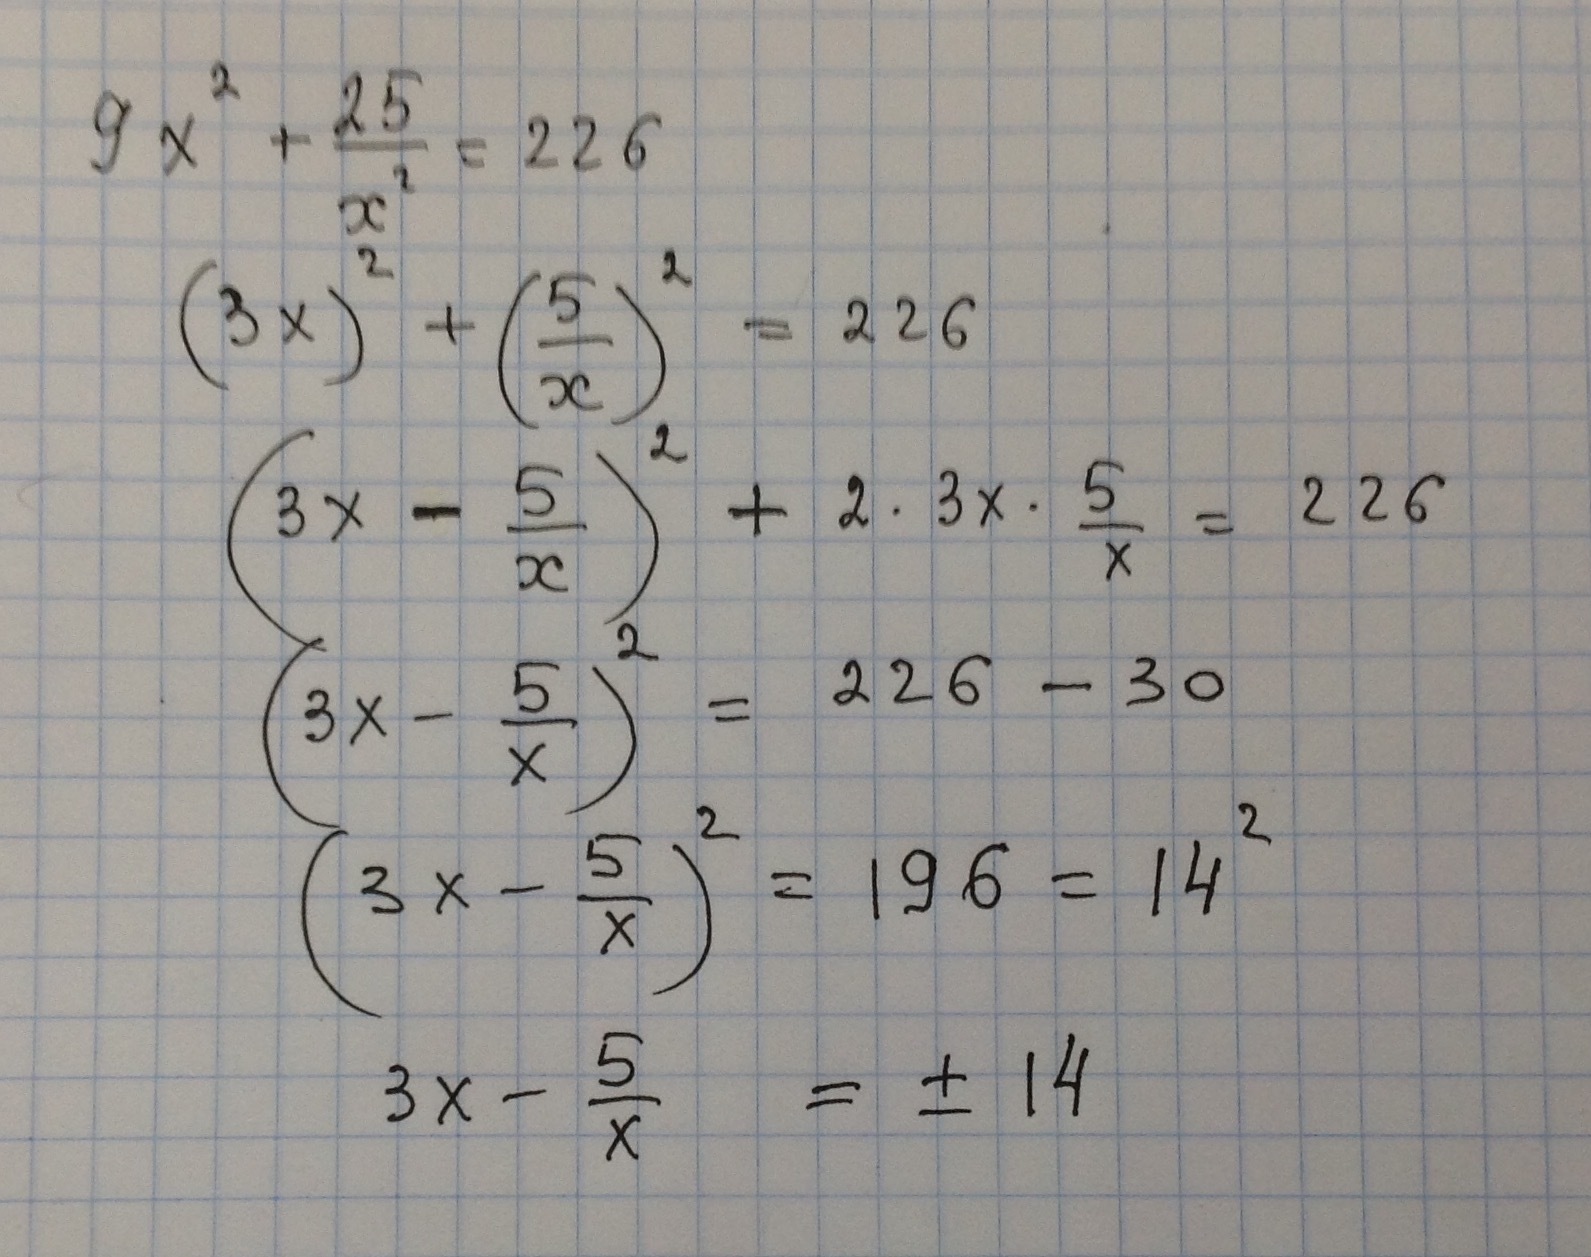 9x² + 25/x² = 226
(3x)² + (5/x)² = 226
(3x - 5/x)² + 2 · 3x · 5/x = 226
(3x - 5/x)² = 226 - 30
(3x - 5/x)² = 196 = 14²
3x - 5/x = ± 14